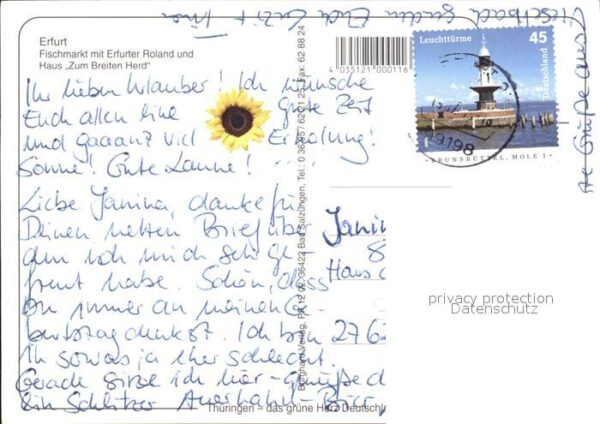 Erfurt
Fischmarkt mit Erfurter Roland und
Haus „Zum Breiten Herd“
Ihr lieben Urlauber! Ich wünsche
Euch allen eine gute Zeit
und gaaanz viel Erholung!
Sonne! Gute Laune!
Liebe Janina, danke für
Deinen netten Brief über
den ich mich sehr ge-
freut habe. Schön, dass
Du immer an meinen Ge-
burtstag denkst. Ich bin
in sowas ja eher schlecht.
Gerade sitze ich hier - genieße d
ein Schlitzer Auerhahn-Bier
Thüringen – das grüne Herz Deutschl
Burghard Verlag, PF 12 02, 36422 Bad Salzungen, Tel.: 0 36 95/ 62 01 25, Fax: 62 88 24
4035121000116
Leuchttürme 45
Deutschland
BRUNSBÜTTEL, MOLE 1
29198
Grüße aus
senden Euch
Janin
Haus
27 G
privacy protection
Datenschutz